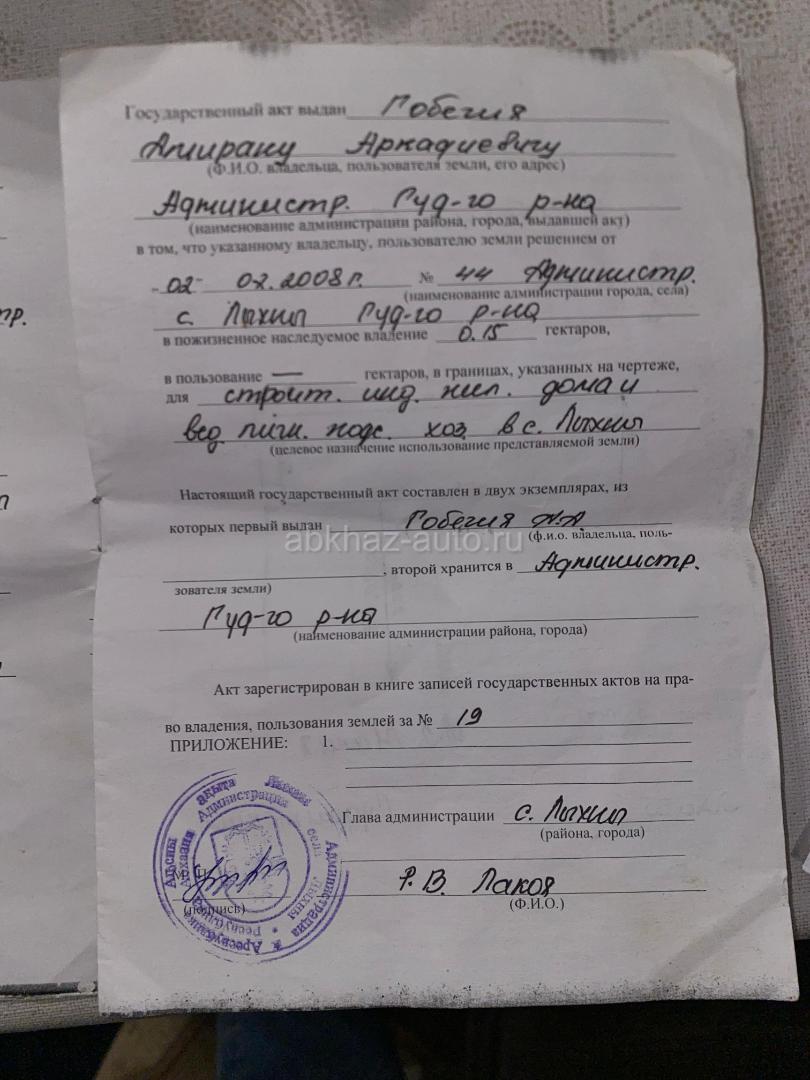 Государственный акт выдан Гобечия
Амирану Аркадиевичу
(Ф.И.О. владельца, пользователя земли, его адрес)
Администр. Гуд-го р-на
(наименование администрации района, города, выдавшей акт)
в том, что указанному владельцу, пользователю земли решением от
-02- 02.2008 г. № 44 Администр.
(наименование администрации города, села)
с. Лыхны Гуд-го р-на
в пожизненное наследуемое владение 0.15 гектаров,
в пользование — гектаров, в границах, указанных на чертеже,
для строит. инд. жил. дома и
вед. личн. подс. хоз. в с. Лыхны
(целевое назначение использование представляемой земли)
Настоящий государственный акт составлен в двух экземплярах, из
которых первый выдан Гобечия А.А
(ф.и.о. владельца, поль-
abkhaz-auto.ru
, второй хранится в Администр.
зователя земли)
Гуд-го р-на
(наименование администрации района, города)
Акт зарегистрирован в книге записей государственных актов на пра-
во владения, пользования землей за № 19
ПРИЛОЖЕНИЕ: 1.
Глава администрации с. Лыхны
(района, города)
Р. В. Лакоя
(подпись) (Ф.И.О.)
Администрация села Лыхны
тр.